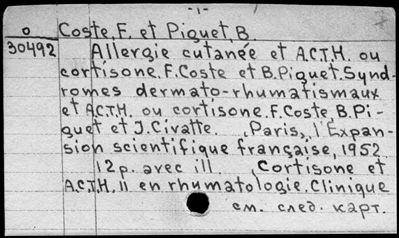 -1-
o Coste, F. et Piguet, B.
30492 Allergie cutanée et A.C.T.H. ou
cortisone. F. Coste et B. Piguet. Synd-
romes dermato-rhumatismaux
et A.C.T.H. ou cortisone. F. Coste, B. Pi-
guet et J. Civatte. Paris, l'Expan-
sion scientifique française, 1952
12 p. avec ill. Cortisone et
A.C.T.H. II en rhumatologie. Clinique
см. след. карт.